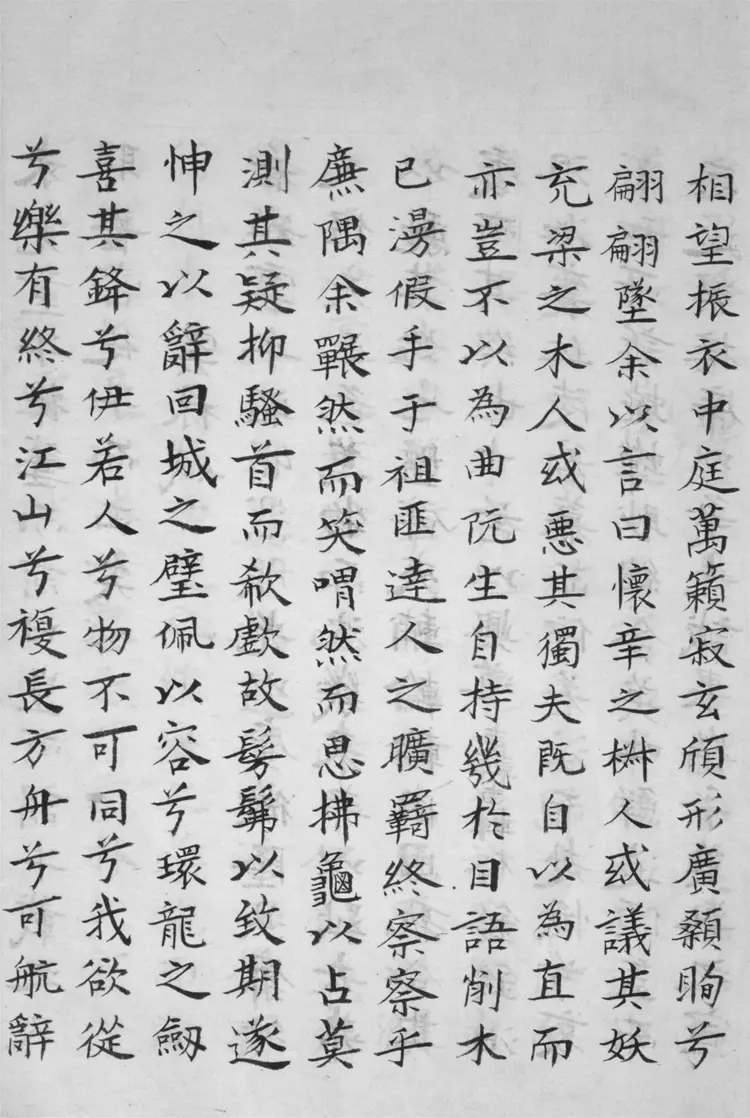 相望振衣中庭萬籟寂玄頎形廣顙眴兮
翩翩墜余以言曰懷辛之樹人或議其妖
充梁之木人或惡其獨夫既自以為直而
亦豈不以為曲阮生自持幾於目語削木
已漫假手于祖匪達人之曠羇終察察乎
廉隅余囅然而笑喟然而思拂龜以占莫
測其疑抑騷首而欷歔故髣髴以致期遂
忡之以辭回城之璧佩以容兮環龍之劒
喜其鋒兮伊若人兮物不可同兮我欲從
兮樂有終兮江山兮複長方舟兮可航辭